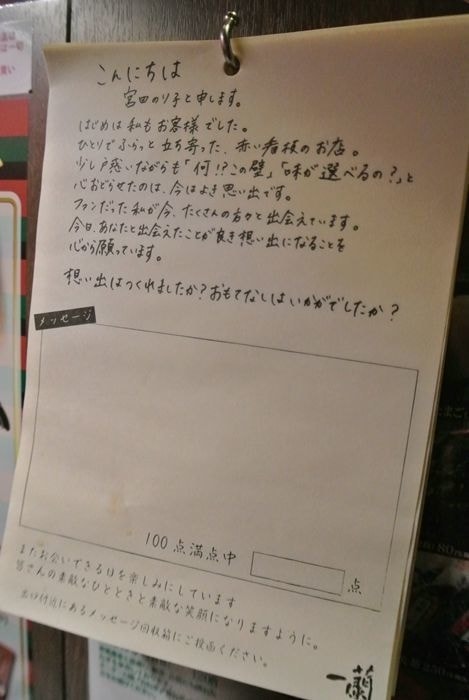 こんにちは
宮田のり子と申します。
はじめは私もお客様でした。
ひとりでふらっと立ち寄った、赤い看板のお店。
少し戸惑いながらも「何!?この壁」「味が選べるの?」と
心おどらせたのは、今はよき思い出です。
ファンだった私が今、たくさんの方々と出会えています。
今日、あなたと出会えたことが良き想い出になることを
心から願っています。
想い出はつくれましたか?おもてなしはいかがでしたか?
メッセージ
100点満点中 点
またお会いできる日を楽しみにしています
皆さんの素敵なひとときと素敵な笑顔になりますように。
出口付近にあるメッセージ回収箱にご投函ください。
一蘭